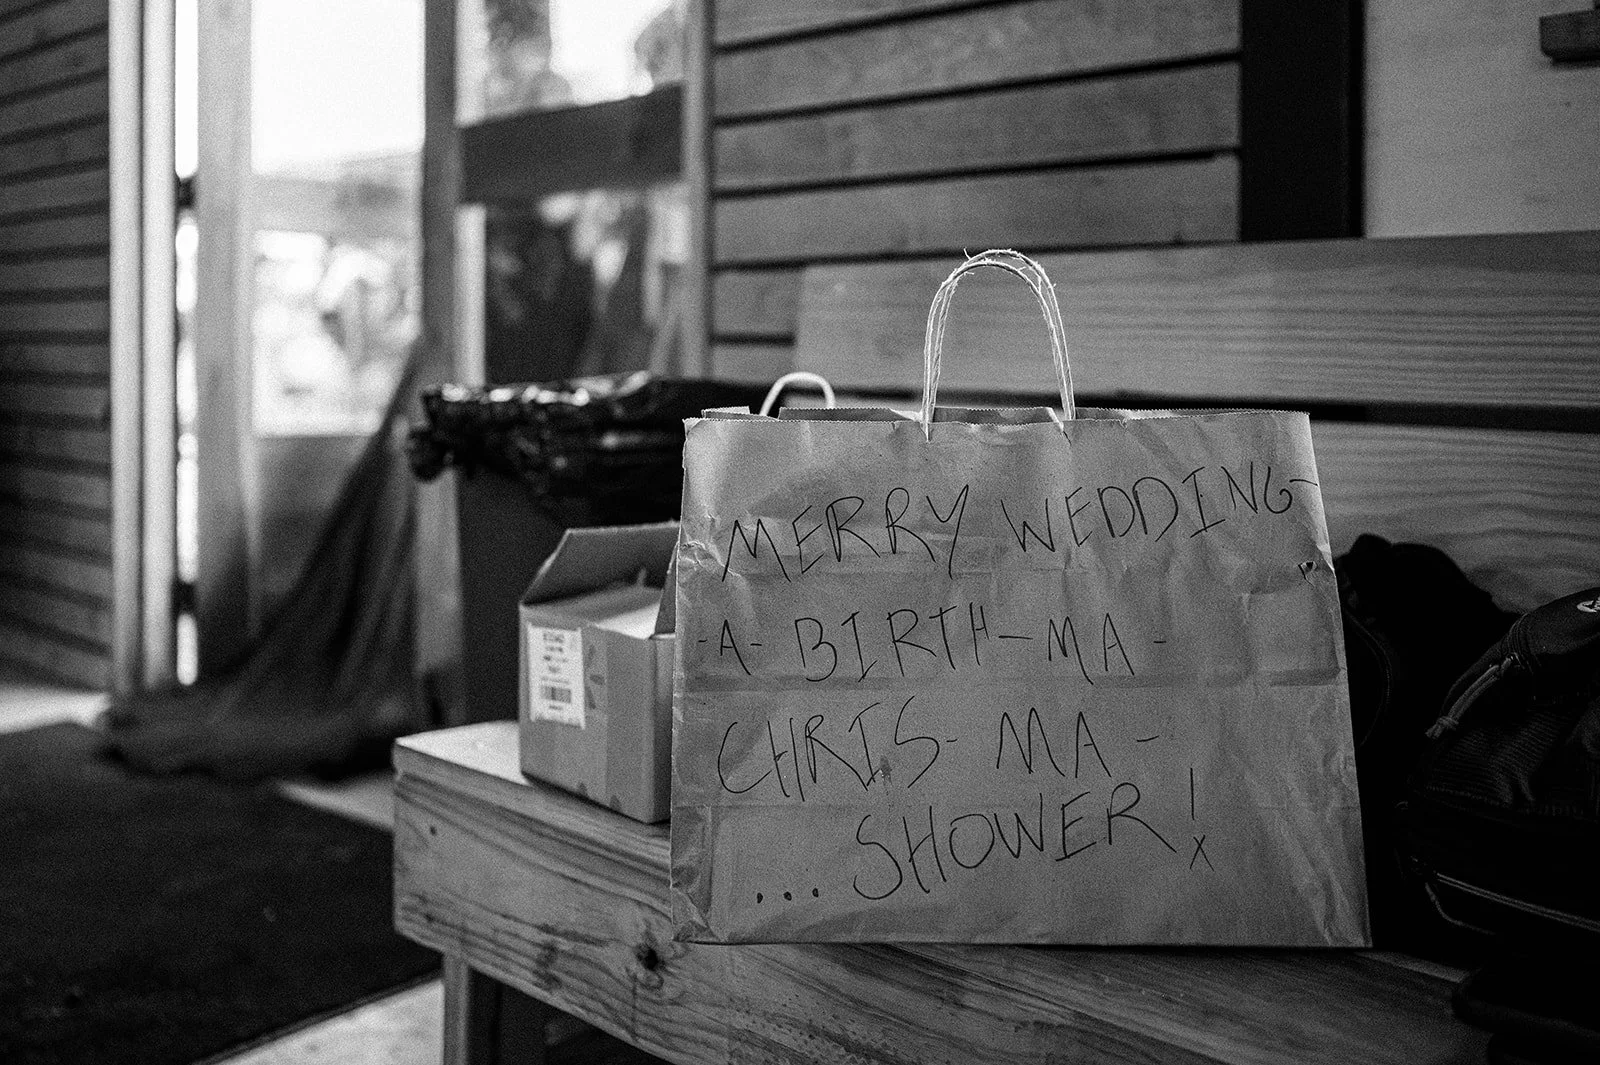 MERRY WEDDING-
-A- BIRTH-MA-
CHRIS-MA-
...SHOWER!
x